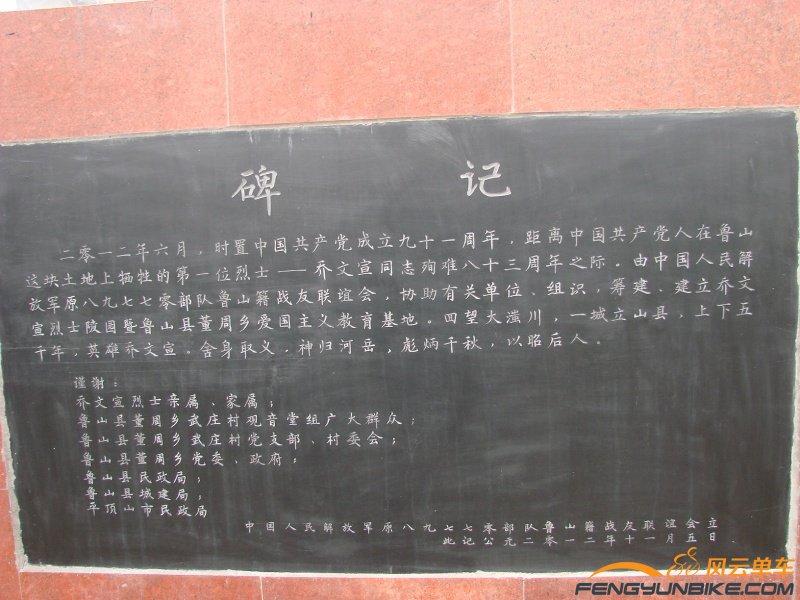 碑 记
二零一二年六月，时置中国共产党成立九十一周年，距离中国共产党人在鲁山
这块土地上牺牲的第一位烈士——乔文宣同志殉难八十三周年之际。由中国人民解
放军原八九七七零部队鲁山籍战友联谊会，协助有关单位、组识，筹建、建立乔文
宣烈士陵园暨鲁山县董周乡爱国主义教育基地。四望大滍川，一城立山县，上下五
千年，英雄乔文宣。舍身取义，神归河岳，彪炳千秋，以昭后人。
谨谢：
乔文宣烈士亲属、家属；
鲁山县董周乡武庄村观音堂组广大群众；
鲁山县董周乡武庄村党支部、村委会；
鲁山县董周乡党委、政府；
鲁山县民政局；
鲁山县城建局；
平顶山市民政局
中国人民解放军原八九七七零部队鲁山籍战友联谊会立
此记公元二零一二年十一月五日
风云单车
FENGYUNBIKE.COM